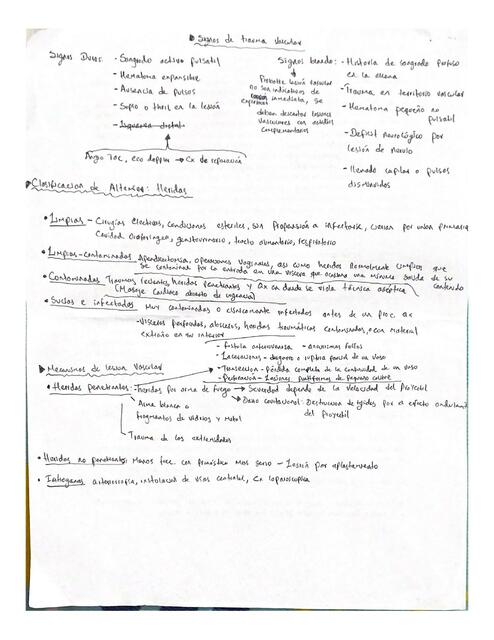 Signos de trauma vascular
Signos Duros: - Sangrado activo pulsatil
- Hematoma expansible
- Ausencia de pulsos
- Soplo o thrill en la lesión
- Isquemia distal
Angio TAC, eco doppler → Cx de reparación
Signos blandos: - Historia de sangrado profuso
en la escena
- Trauma en territorio vascular
- Hematoma pequeño no
pulsatil
- Deficit neurológico por
lesión de nervio
- llenado capilar o pulsos
disminuidos
Probable lesión vascular
no son indicativos de
inmediata, se
deben descartar lesiones
vasculares con estudios
complementarios
Clasificación de Altemeier: Heridas
• Limpias - Cirugías electivas, condiciones esteriles, sin propensión a infectarse, cierran por union primaria
Cavidad orofaringea, genitourinario, tracto alimentario, respiratorio
• Limpias-contaminadas Apendicectomia, operaciones vaginales, asi como heridas normalmente limpias que
se contaminan por la entrada en una viscera que ocasiona una minima salida de su contenido
• Contaminadas Traumas recientes, heridas penetrantes y Qx en donde se viola técnica aséptica
(Masaje cardiaco abierto de urgencia)
• Sucias e infectadas Muy contaminadas o clinicamente infectadas antes de un proc. qx
- Visceras perforadas, abscesos, heridas traumáticas contaminadas, con material
extraño en su interior
Mecanismos de lesión Vascular
- Fistula arteriovenosa - aneurismas falsos
- Laceraciones - desgarro o ruptura parcial de un vaso
- Transección - Pérdida completa de la continuidad de un vaso
- Perforación - Lesiones puntiformes de pequeño calibre
• Heridas penetrantes - Heridas por arma de fuego → Severidad depende de la velocidad del Proyectil
→ Daño cavitacional: Destruccion de tejidos por el efecto ondulante
del Proyectil
Arma blanca o
fragmentos de vidrios y metal
Trauma de las extremidades
• Heridas no penetrantes: Menos frec. con pronóstico mas serio - Lesión por aplastamiento
• Iatrogenas arteriografia, instalacion de vias centrales, Cx laparoscopica